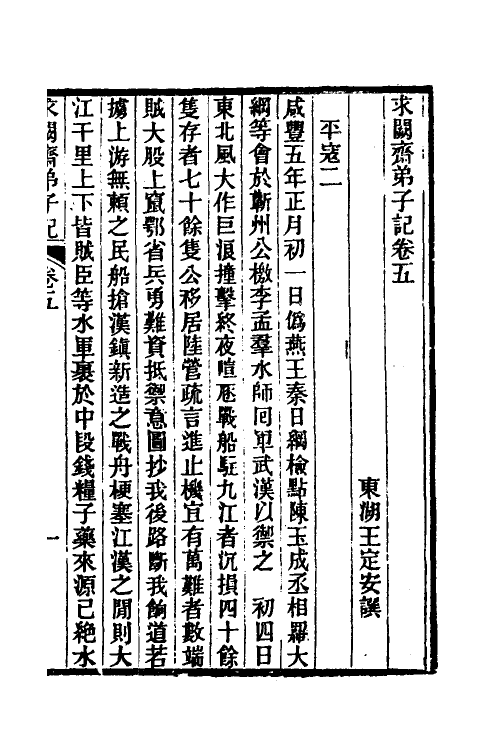 求闕齋弟子記卷五
東湖王定安譔
平寇二
咸豐五年正月初一日僞燕王秦日綱檢點陳玉成丞相羅大
綱等會於蘄州公檄李孟羣水師囘軍武漢以禦之　初四日
東北風大作巨浪撞擊終夜喧豗戰船駐九江者沉損四十餘
隻存者七十餘隻公移居陸營疏言進止機宜有萬難者數端
賊大股上竄鄂省兵勇難資抵禦意圖抄我後路斷我餉道若
擄上游無賴之民船搶漢鎮新造之戰舟梗塞江漢之閒則大
江千里上下皆賊臣等水軍裹於中段錢糧子藥來源已絶水
求闕齋弟子記
卷五
一